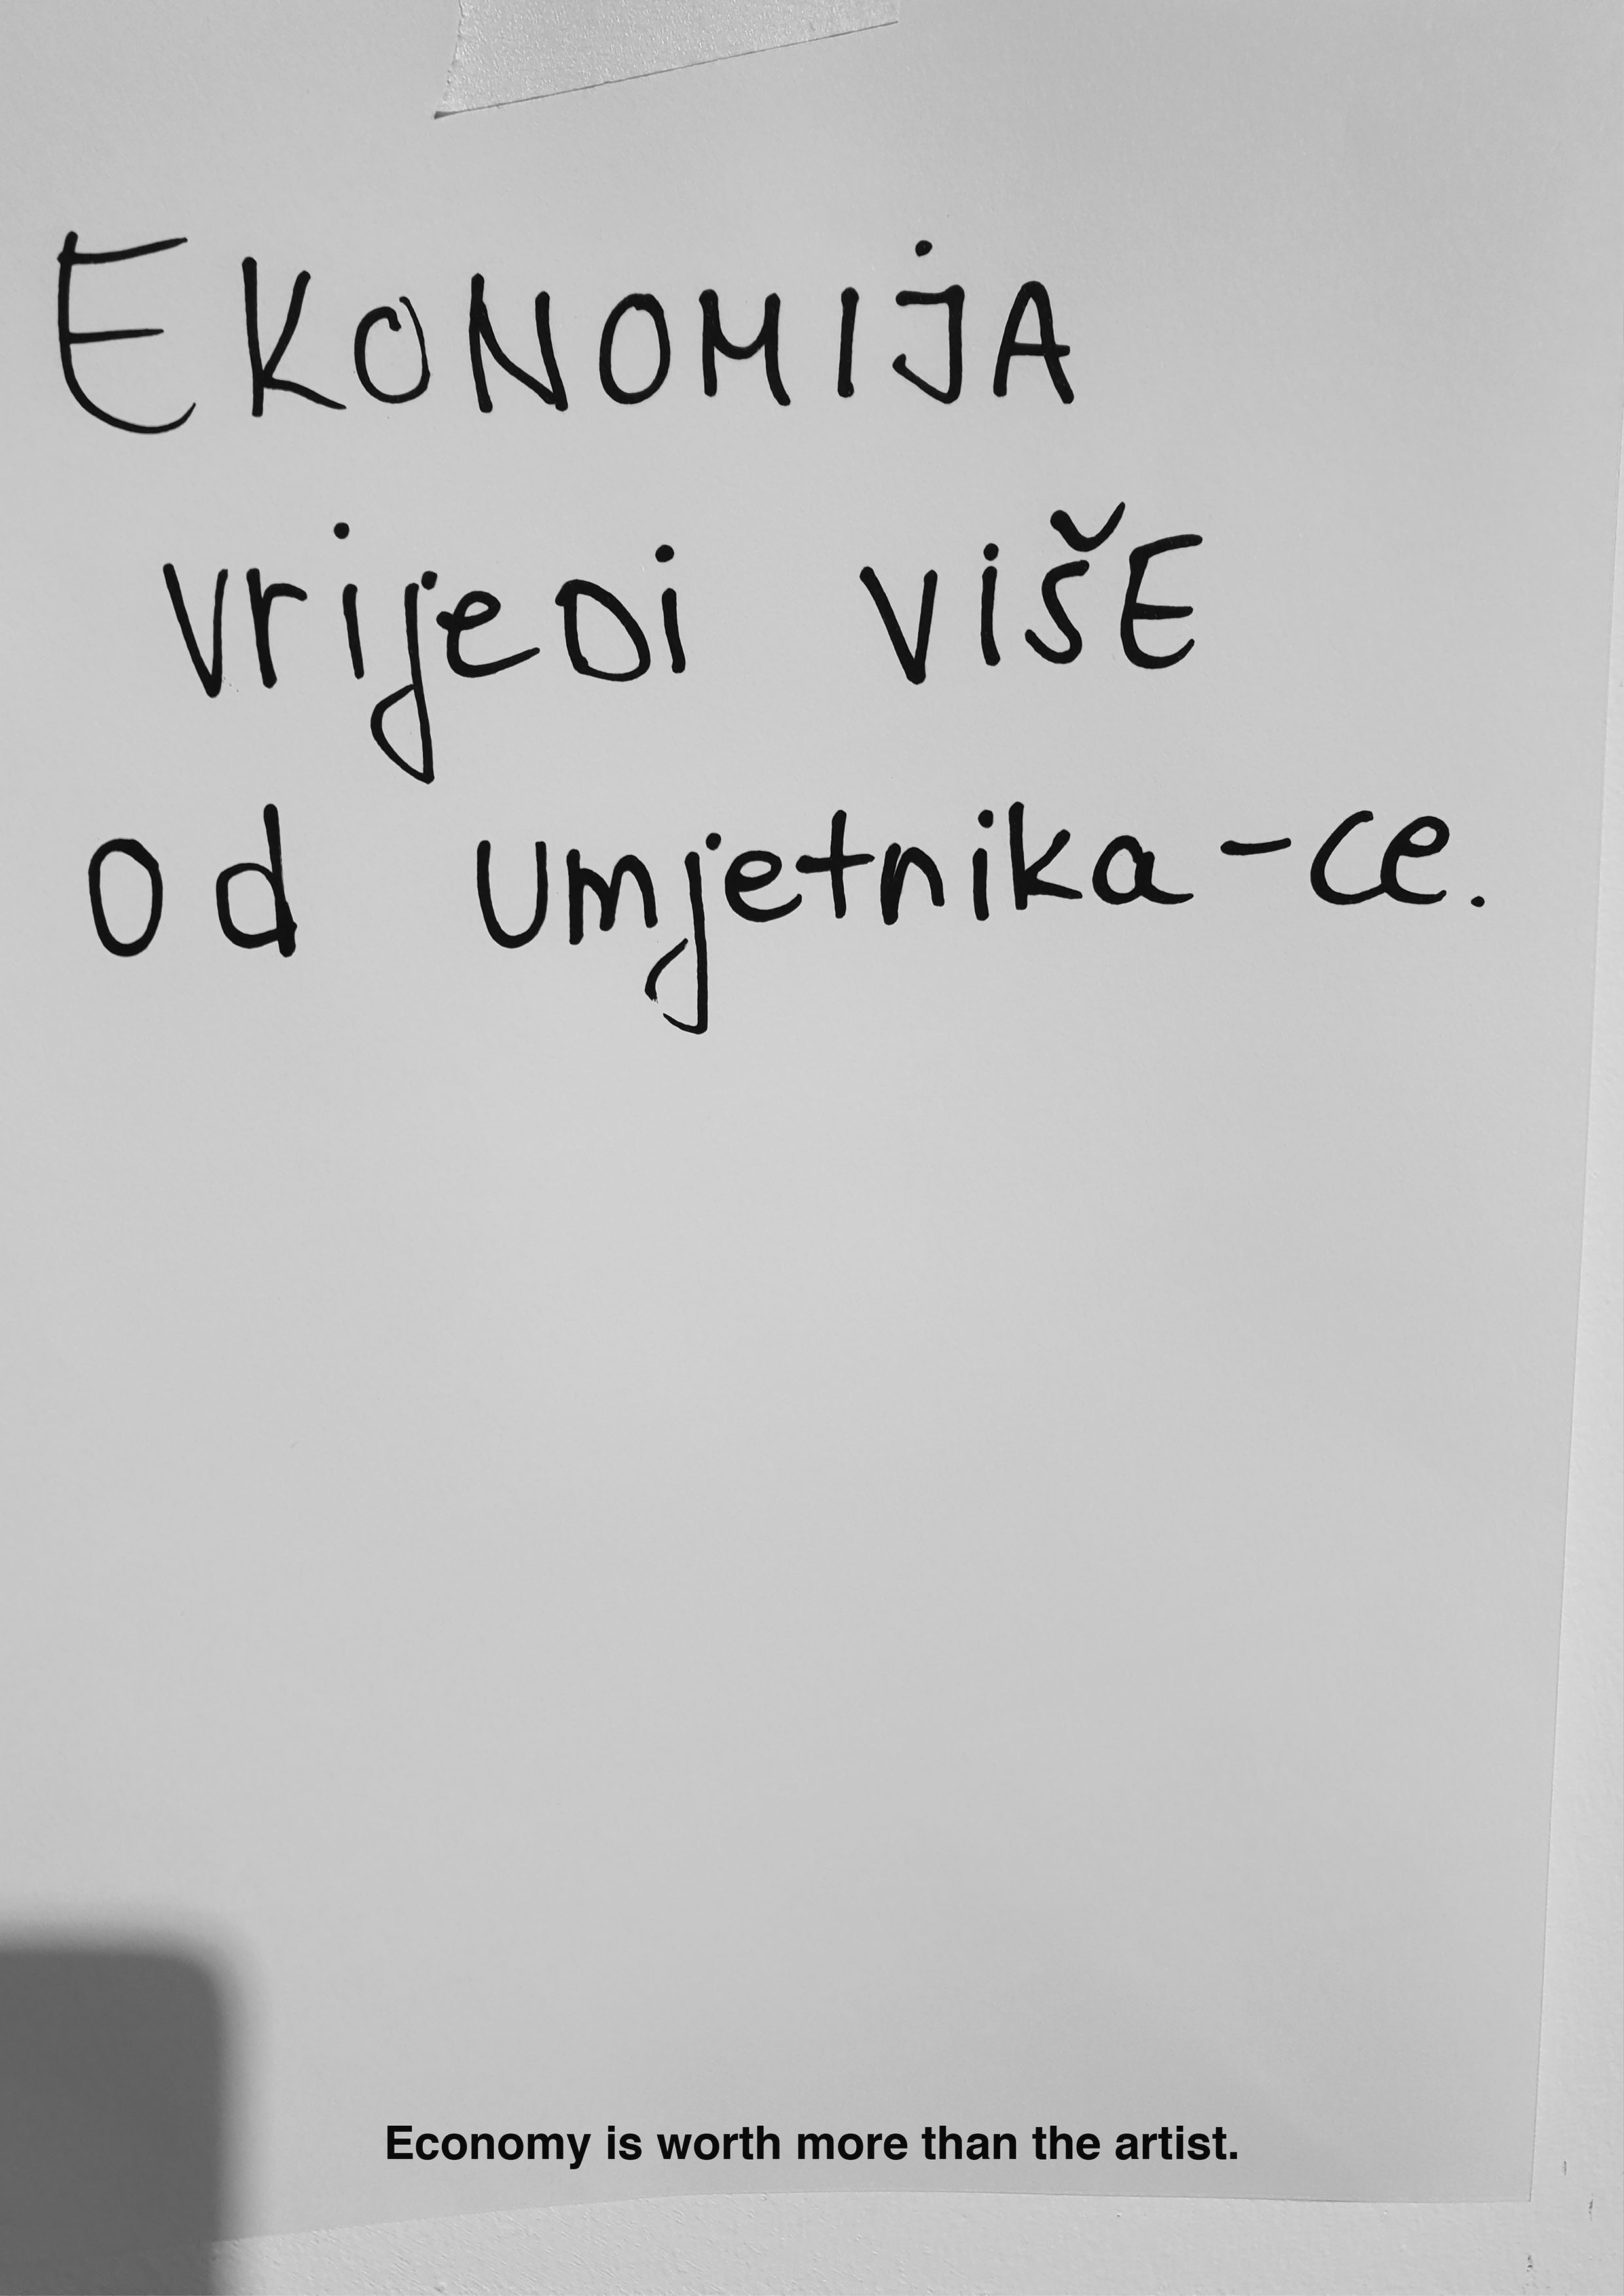 EKONOMIJA
vrijeDi višE
od umjetnika-ce.
Economy is worth more than the artist.